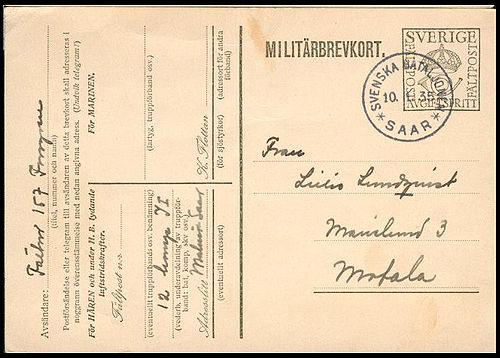 MILITÄRBREVKORT.
SVERIGE
FÄLTPOST
AVGIFTSFRITT
SVENSKA BATALJONEN
10. 1. 35
SAAR
Fru
Motala
Avsändare:
157
(titel, nummer och namn)
Postförsändelse eller telegram till avsändaren av detta brevkort skall adresseras i
noggrann överensstämmelse med nedan angivna adress. (Undvik telegram!)
För HÄREN och under H. B. lydande
luftstridskrafter.
Fältpost nr
(eventuellt truppförbands osv. benämning)
12 komp I I
(vederb. underavdelning av truppför-
band: bat, komp, skv osv.)
Adressort
Saar
(eventuell adressort)
För MARINEN.
(fartyg, truppförband osv.)
K. Flottan
(för sjöstyrkor)
(adressort för andra
förband)